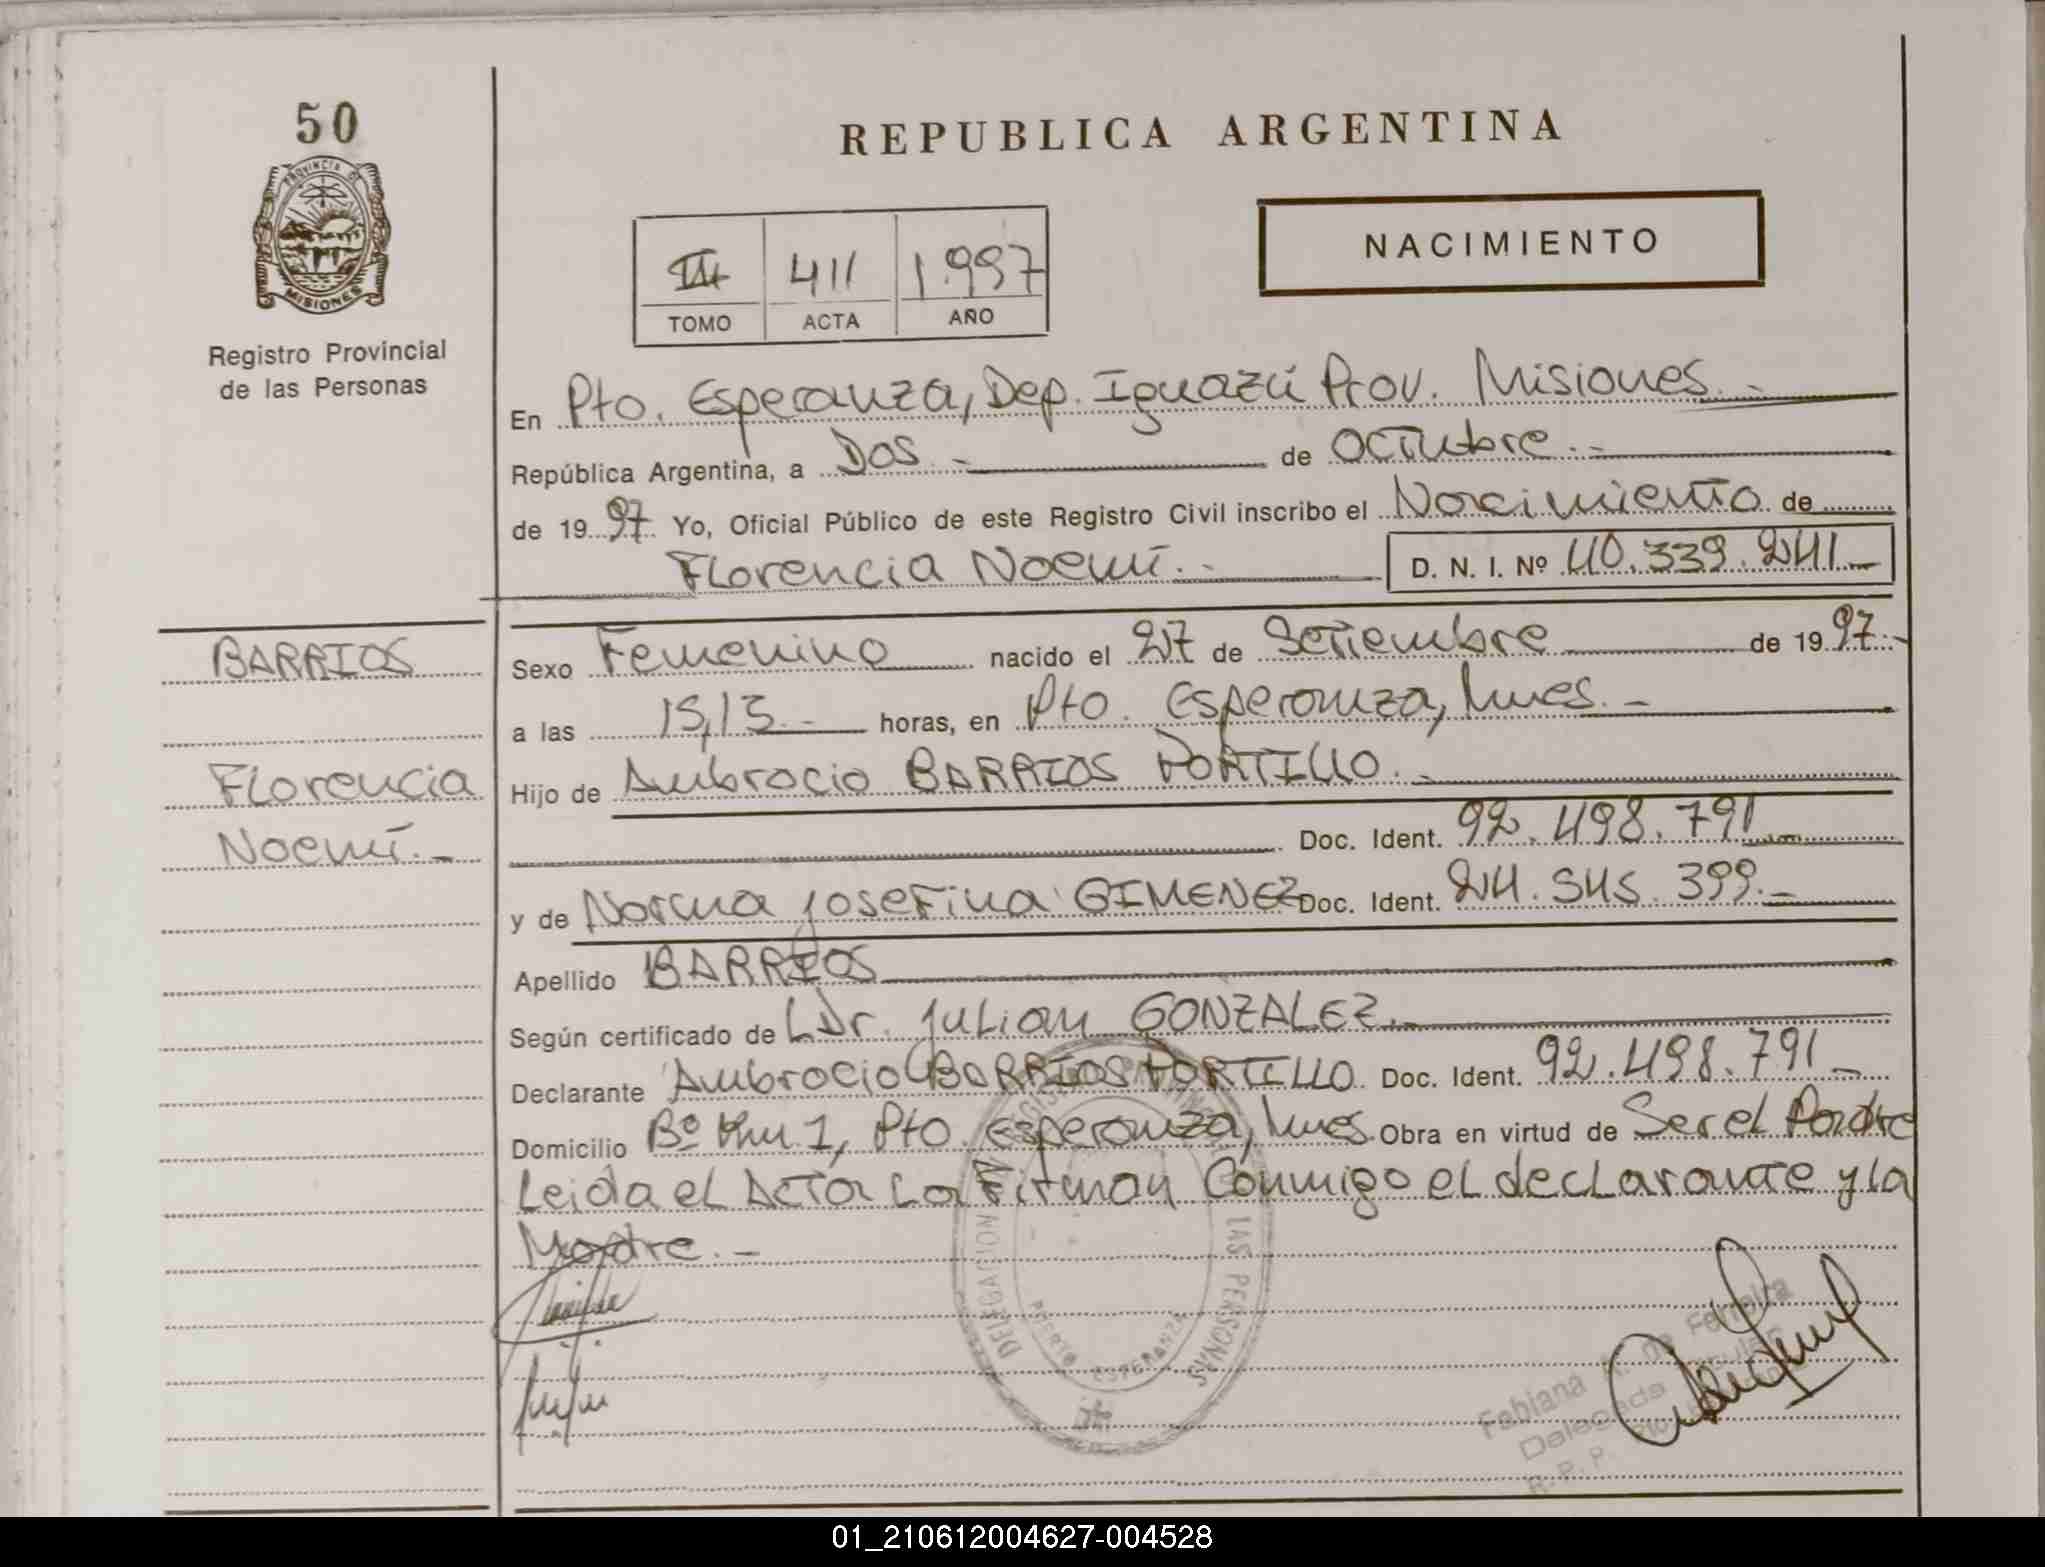 50
PROVINCIA DE
MISIONES
Registro Provincial
de las Personas
REPUBLICA ARGENTINA
NACIMIENTO
411 1.997
TOMO ACTA AÑO
En Pto. Esperanza, Dep. Iguazú Prov. Misiones.-
República Argentina, a Dos.- de Octubre.-
de 1997 Yo, Oficial Público de este Registro Civil inscribo el Nacimiento de
Florencia Noemí.- D. N. I. Nº 40.339.241.-
BARRIOS
Florencia
Noemí.-
Sexo Femenino nacido el 27 de Setiembre de 1997.-
a las 15,15.- horas, en Pto. Esperanza, Mnes.-
Hijo de Ambrocio BARRIOS PORTILLO.-
Doc. Ident. 92.498.791.-
y de Norma Josefina GIMENEZ Doc. Ident. 24.545.399.-
Apellido BARRIOS
Según certificado de Dr. Julian GONZALEZ.-
Declarante Ambrocio BARRIOS PORTILLO Doc. Ident. 92.498.791.-
Domicilio Bº Km 1, Pto. Esperanza, Mnes. Obra en virtud de Ser el Padre
Leida el Acta La Firman Conmigo el declarante y la
Madre.-
DELEGACION LAS PERSONAS
PUERTO ESPERANZA
Fabiana A. Ferreira
Delegada Titular
R. P. P.
01_210612004627-004528